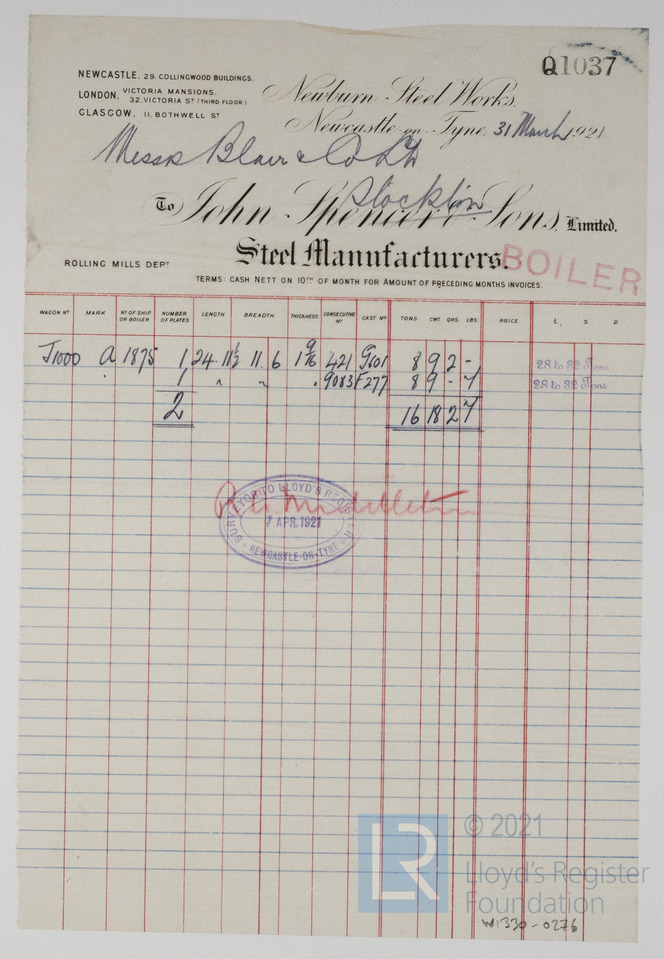 Q1037
NEWCASTLE, 29, COLLINGWOOD BUILDINGS.
LONDON, VICTORIA MANSIONS, 32, VICTORIA ST (THIRD FLOOR)
GLASGOW, 11, BOTHWELL ST
Newburn Steel Works,
Newcastle-on-Tyne, 31 March 1921
Messrs Blair & Co Ltd
Stockton
To John Spencer & Sons, Limited,
Steel Manufacturers.
ROLLING MILLS DEPT
BOILER
TERMS: CASH NETT ON 10TH OF MONTH FOR AMOUNT OF PRECEDING MONTHS INVOICES.
WAGON NO MARK NO OF SHIP OR BOILER NUMBER OF PLATES LENGTH BREADTH THICKNESS CONSECUTIVE NO CAST NO TONS. CWT QRS. LBS PRICE. £. S. D.
J1000 A 1875 1 24. 11½ 11. 6 1 9/16 421 G101 8 9 2 - 28 to 32 Tons
" 1 " " " 9083 F277 8 9 - 7 28 to 32 Tons
2 16 18 2 7
SURVEYOR TO LLOYD'S REGISTER
7 APR. 1921
NEWCASTLE-ON-TYNE
Middleton
LR
© 2021
Lloyd's Register
Foundation
W1330-0276